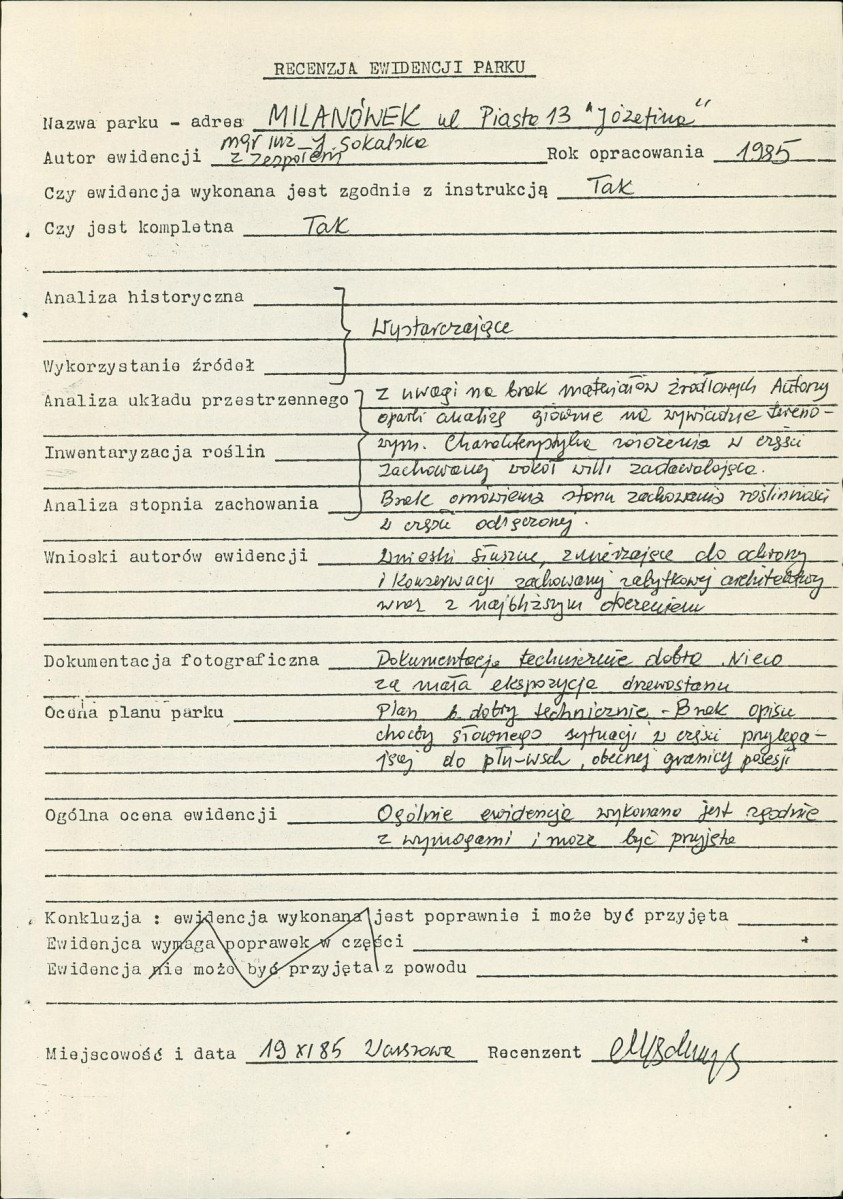 RECENZJA EWIDENCJI PARKU
Nazwa parku - adres MILANÓWEK ul Piasta 13 "Józefina"
Autor ewidencji mgr inż J. Sokalska z zespołem Rok opracowania 1985
Czy ewidencja wykonana jest zgodnie z instrukcją Tak
Czy jest kompletna Tak
Analiza historyczna
Wystarczające
Wykorzystanie źródeł
Analiza układu przestrzennego z uwagi na brak materiałów źródłowych Autorzy
oparli analizę głównie na wywiadzie tereno-
Inwentaryzacja roślin wym. Charakterystyka założenia w części
zachowanej wokół willi zadawalająca.
Analiza stopnia zachowania Brak omówienia stanu zachowania roślinności
w części odłączonej.
Wnioski autorów ewidencji Wnioski słuszne, zmierzające do ochrony
i konserwacji zachowanej zabytkowej architektury
wraz z najbliższym otoczeniem
Dokumentacja fotograficzna Dokumentacja technicznie dobra. Nieco
za mała ekspozycja drzewostanu
Ocena planu parku Plan dobry technicznie - Brak opisu
choćby słownego sytuacji w części przylega-
jącej do płn-wsch, obecnej granicy posesji
Ogólna ocena ewidencji Ogólnie ewidencja wykonana jest zgodnie
z wymogami i może być przyjęta
Konkluzja : ewidencja wykonana jest poprawnie i może być przyjęta
Ewidenjca wymaga poprawek w części
Ewidencja nie może być przyjęta z powodu
Miejscowość i data 19 XI 85 Warszawa Recenzent